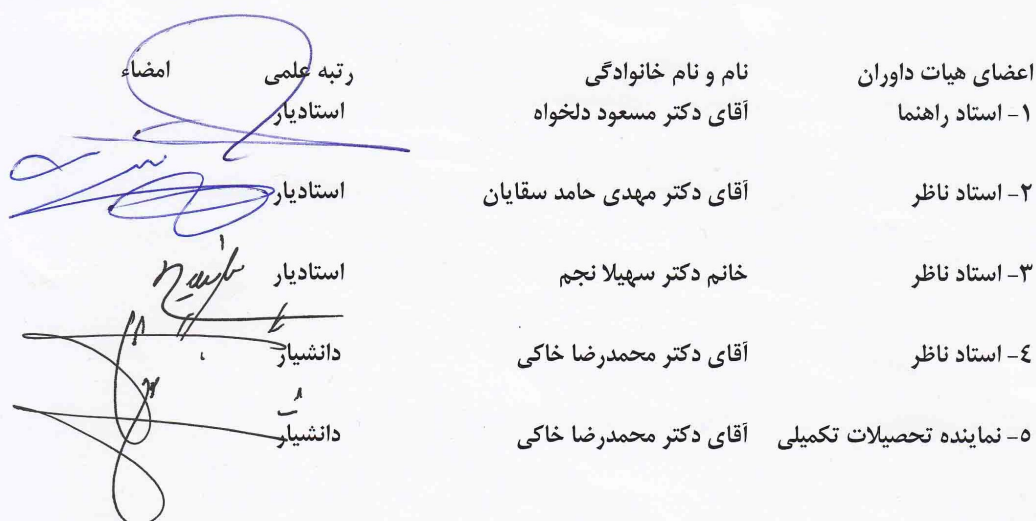 اعضای هیات داوران نام و نام خانوادگی رتبه علمی امضاء
۱- استاد راهنما آقای دکتر مسعود دلخواه استادیار
۲- استاد ناظر آقای دکتر مهدی حامد سقایان استادیار
۳- استاد ناظر خانم دکتر سهیلا نجم استادیار
٤- استاد ناظر آقای دکتر محمدرضا خاکی دانشیار
٥- نماینده تحصیلات تکمیلی آقای دکتر محمدرضا خاکی دانشیار